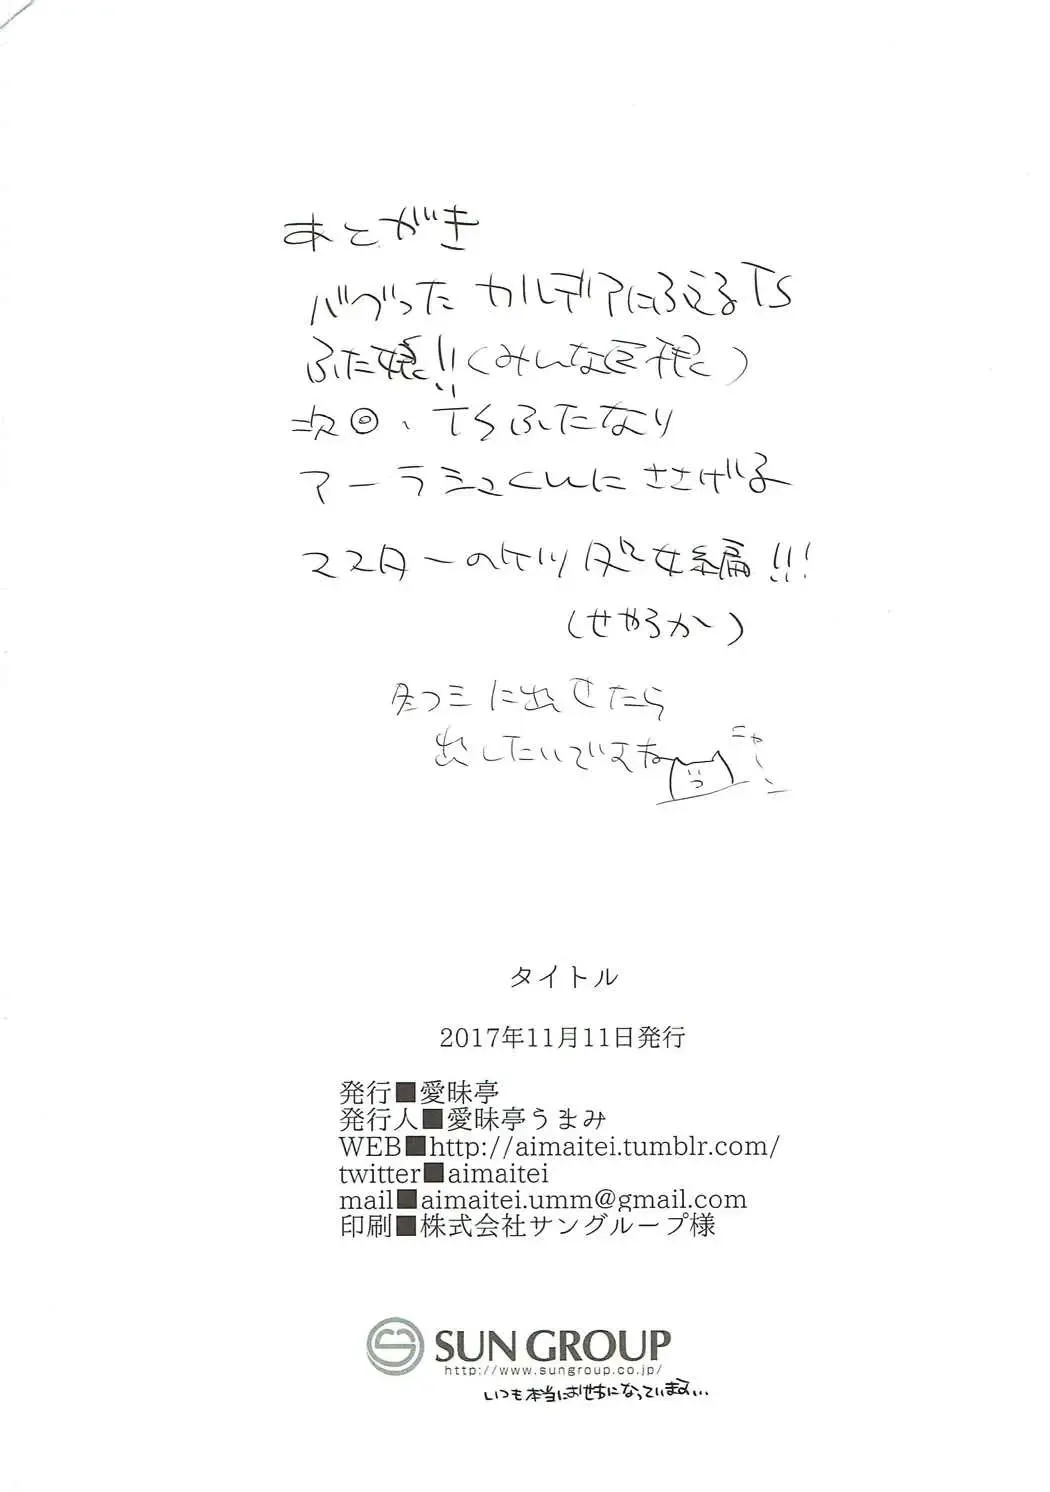 あとがき
バグったカルデアにふえるTS
ふた娘!!(みんな巨根)
次回、TSふたなり
アーラシュくんにささげる
マスターのケツ処女編!!!
(せやろかー)
冬コミに出せたら
出したいですね
ニャーン
タイトル
2017年11月11日発行
発行■愛昧亭
発行人■愛昧亭うまみ
WEB■http://aimaitei.tumblr.com/
twitter■aimaitei
mail■aimaitei.umm@gmail.com
印刷■株式会社サングループ様
SUN GROUP
http://www.sungroup.co.jp/
いつも本当におせちになっています...